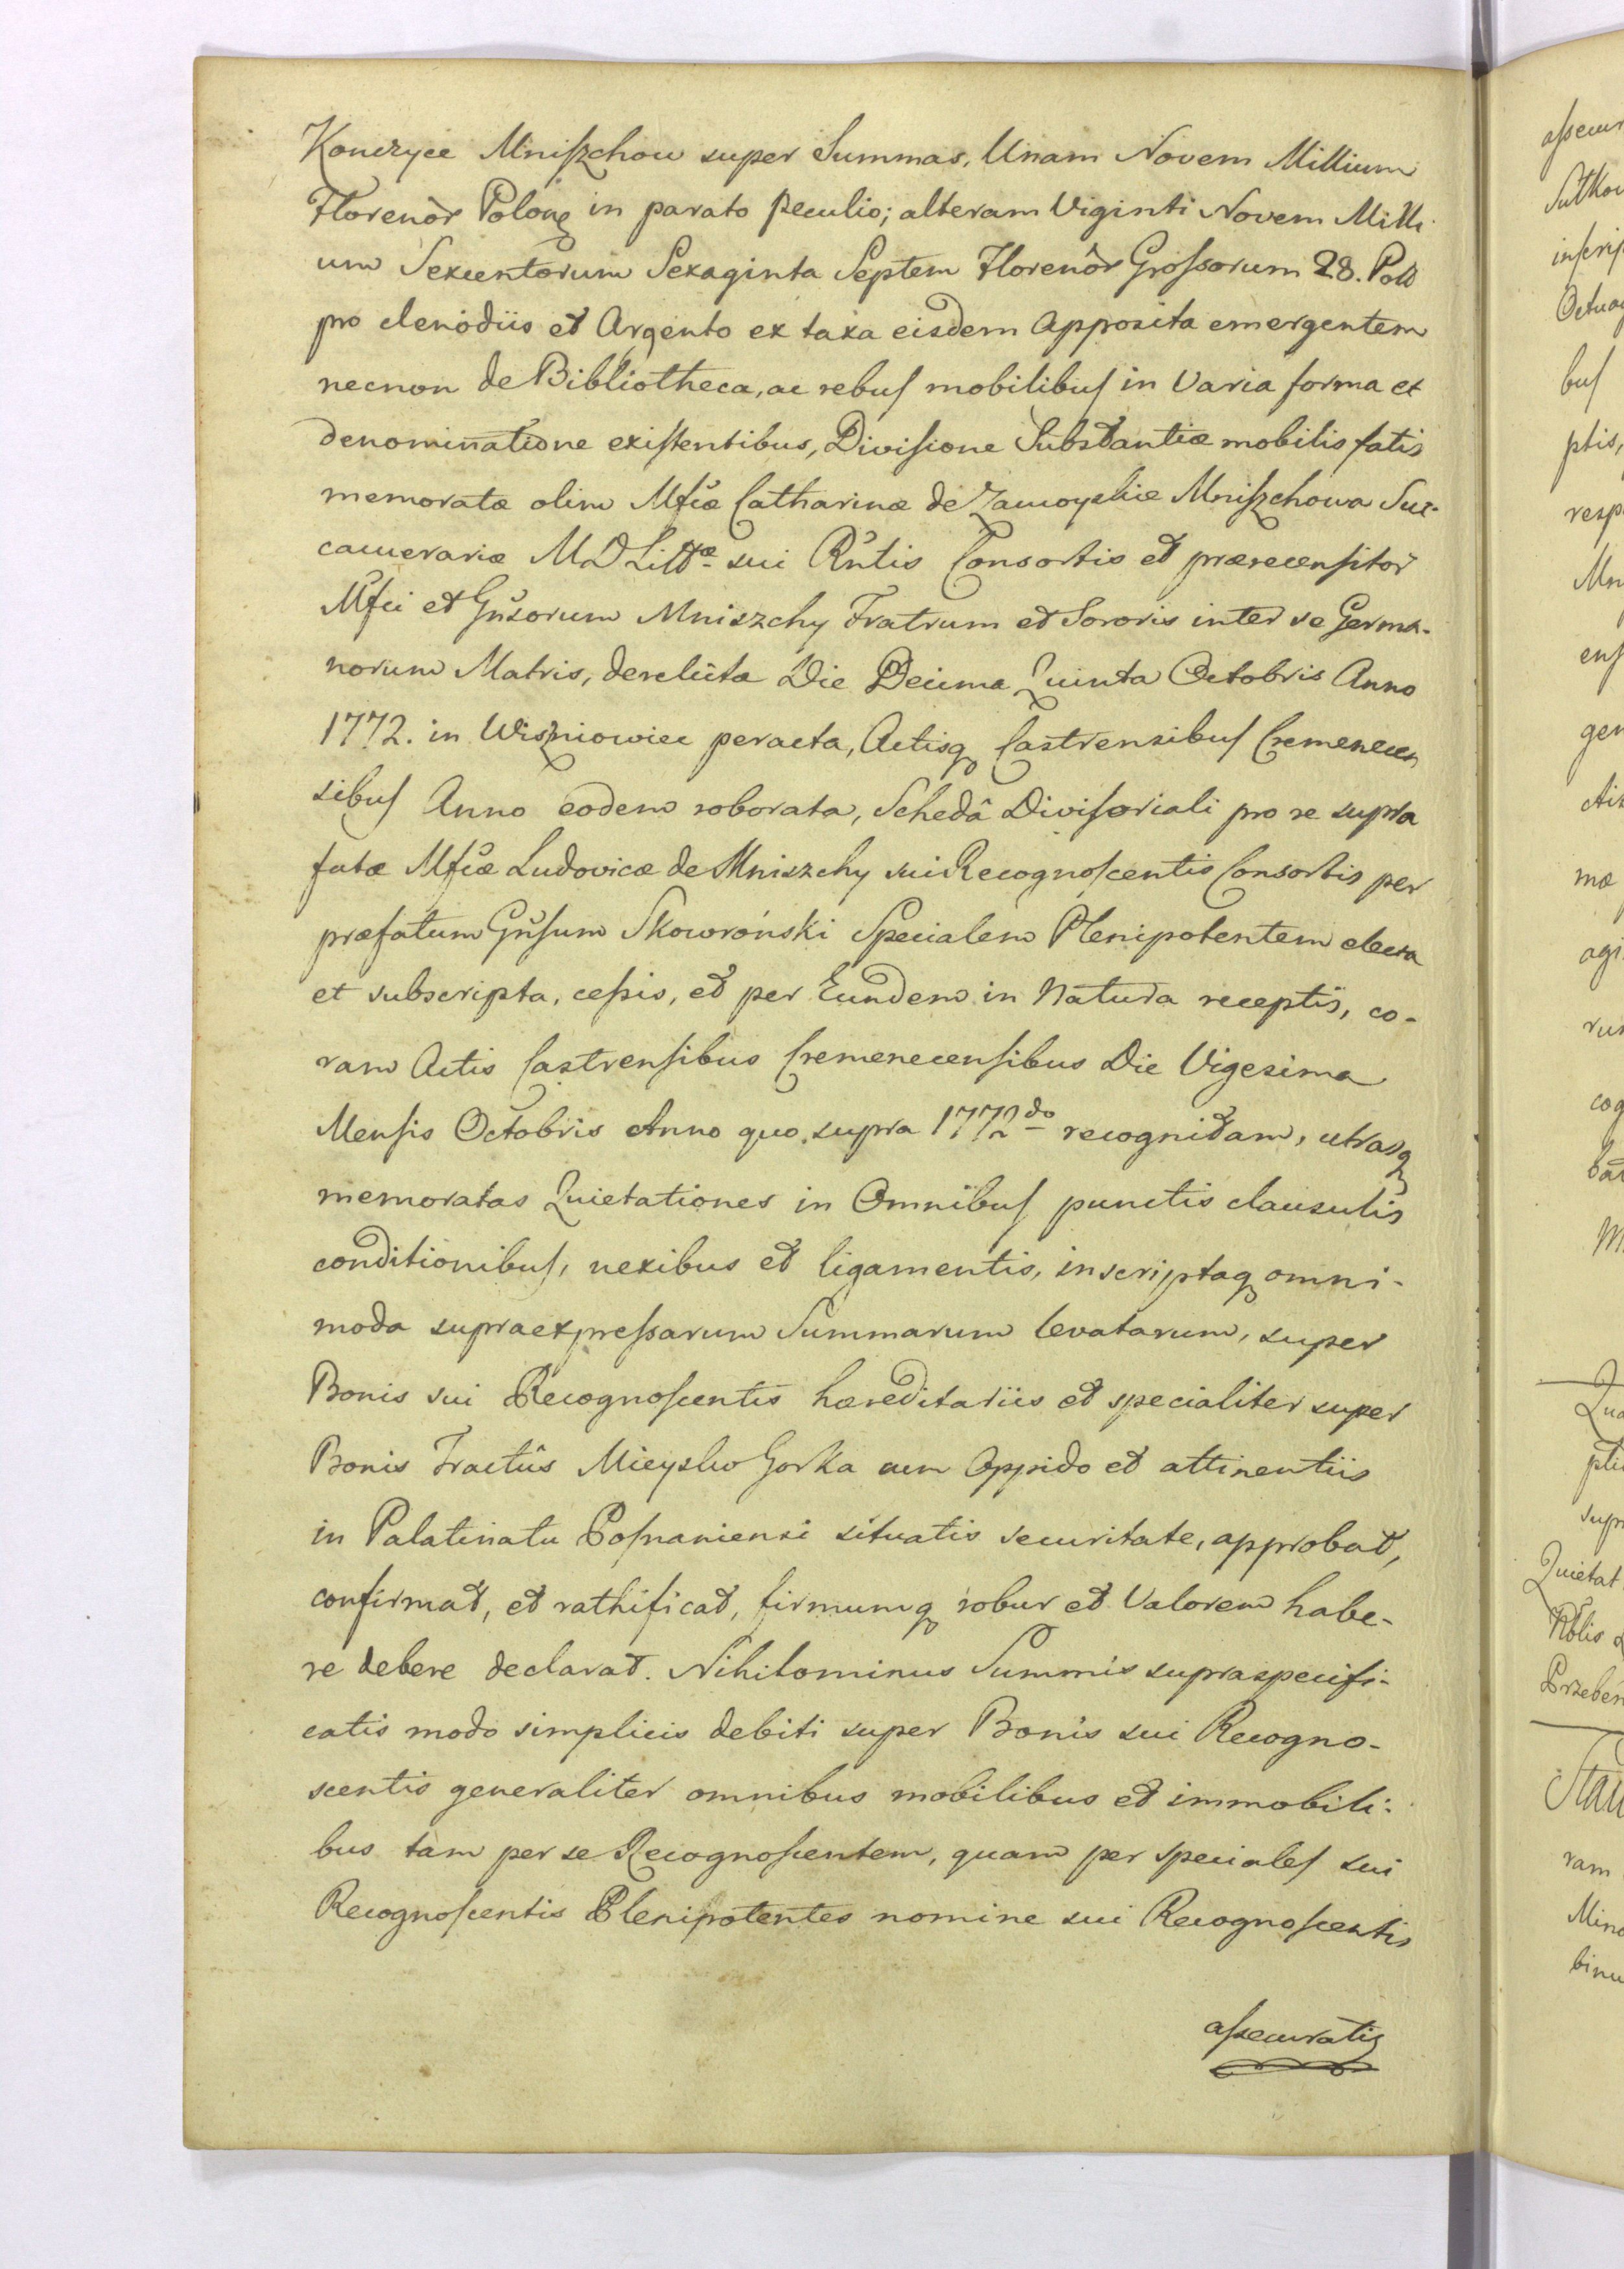 Konczyce Mniſzchow super Summas, Unam Novem Millium
Florenôr Polonͨ in parato peculio; alteram Viginti Novem Milli-
um Sexcentorum Sexaginta Septem Florenôr Groſsorum 28. Poll
pro clenodiis et Argento ex taxa eisdem Apposita emergentem
necnon de Bibliotheca, ac rebuſ mobilibuſ in Varia forma et
denominatione exiſtentibus, Diviſione Substantiæ mobilis fatis
memoratæ olim Mfcæ Catharinæ de Zamoyskie Mniſzchowa Suc-
camerariæ M D Littæ sui Rntis Consortis et prærecenſitor
Mfci et Gnsorum Mniszchy Fratrum et Sororis inter se Germa-
norum Matris, derelictæ Die Decima Quinta Octobris Anno
1772. in Wiszniowiec peracta, Actisq Castrensibuſ Cremenecen
sibuſ Anno eodem roborata, Schedâ Diviſoriali pro re supra
fatæ Mfcæ Ludovicæ de Mniszchy sui Recognoſcentis Consortis per
præfatum Gnſum Skowroński Specialem Plenipotentem electa
et subscripta, ceſsis, et per Eundem in Natura receptis, co-
ram Actis Castrenſibus Cremenecenſibus Die Vigesima
Menſis Octobris Anno quo supra 1772do recognitam, utrasq
memoratas Quietationes in Omnibuſ punctis clausulis
conditionibuſ, nexibus et ligamentis, inscriptaq omni-
moda supraexpreſsarum Summarum levatarum, super
Bonis sui Recognoſcentis hæreditariis et specialiter super
Bonis Tractûs Mieysko Gorka cum Oppido et attinentiis
in Palatinatu Poſnaniensi situatis securitate, approbat,
confirmat, et rathificat, firmumq robur et Valorem habe-
re debere declarat. Nihilominus Summis supraspecifi-
catis modo simplicis debiti super Bonis sui Recogno-
scentis generaliter omnibus mobilibus et immobili-
bus tam per se Recognoſcentem, quam per specialeſ sui
Recognoſcentis Plenipotentes nomine sui Recognoſcentis
aſsecuratis